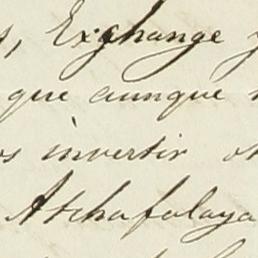 Exchange
que aunque
invertir
Atchafalaya